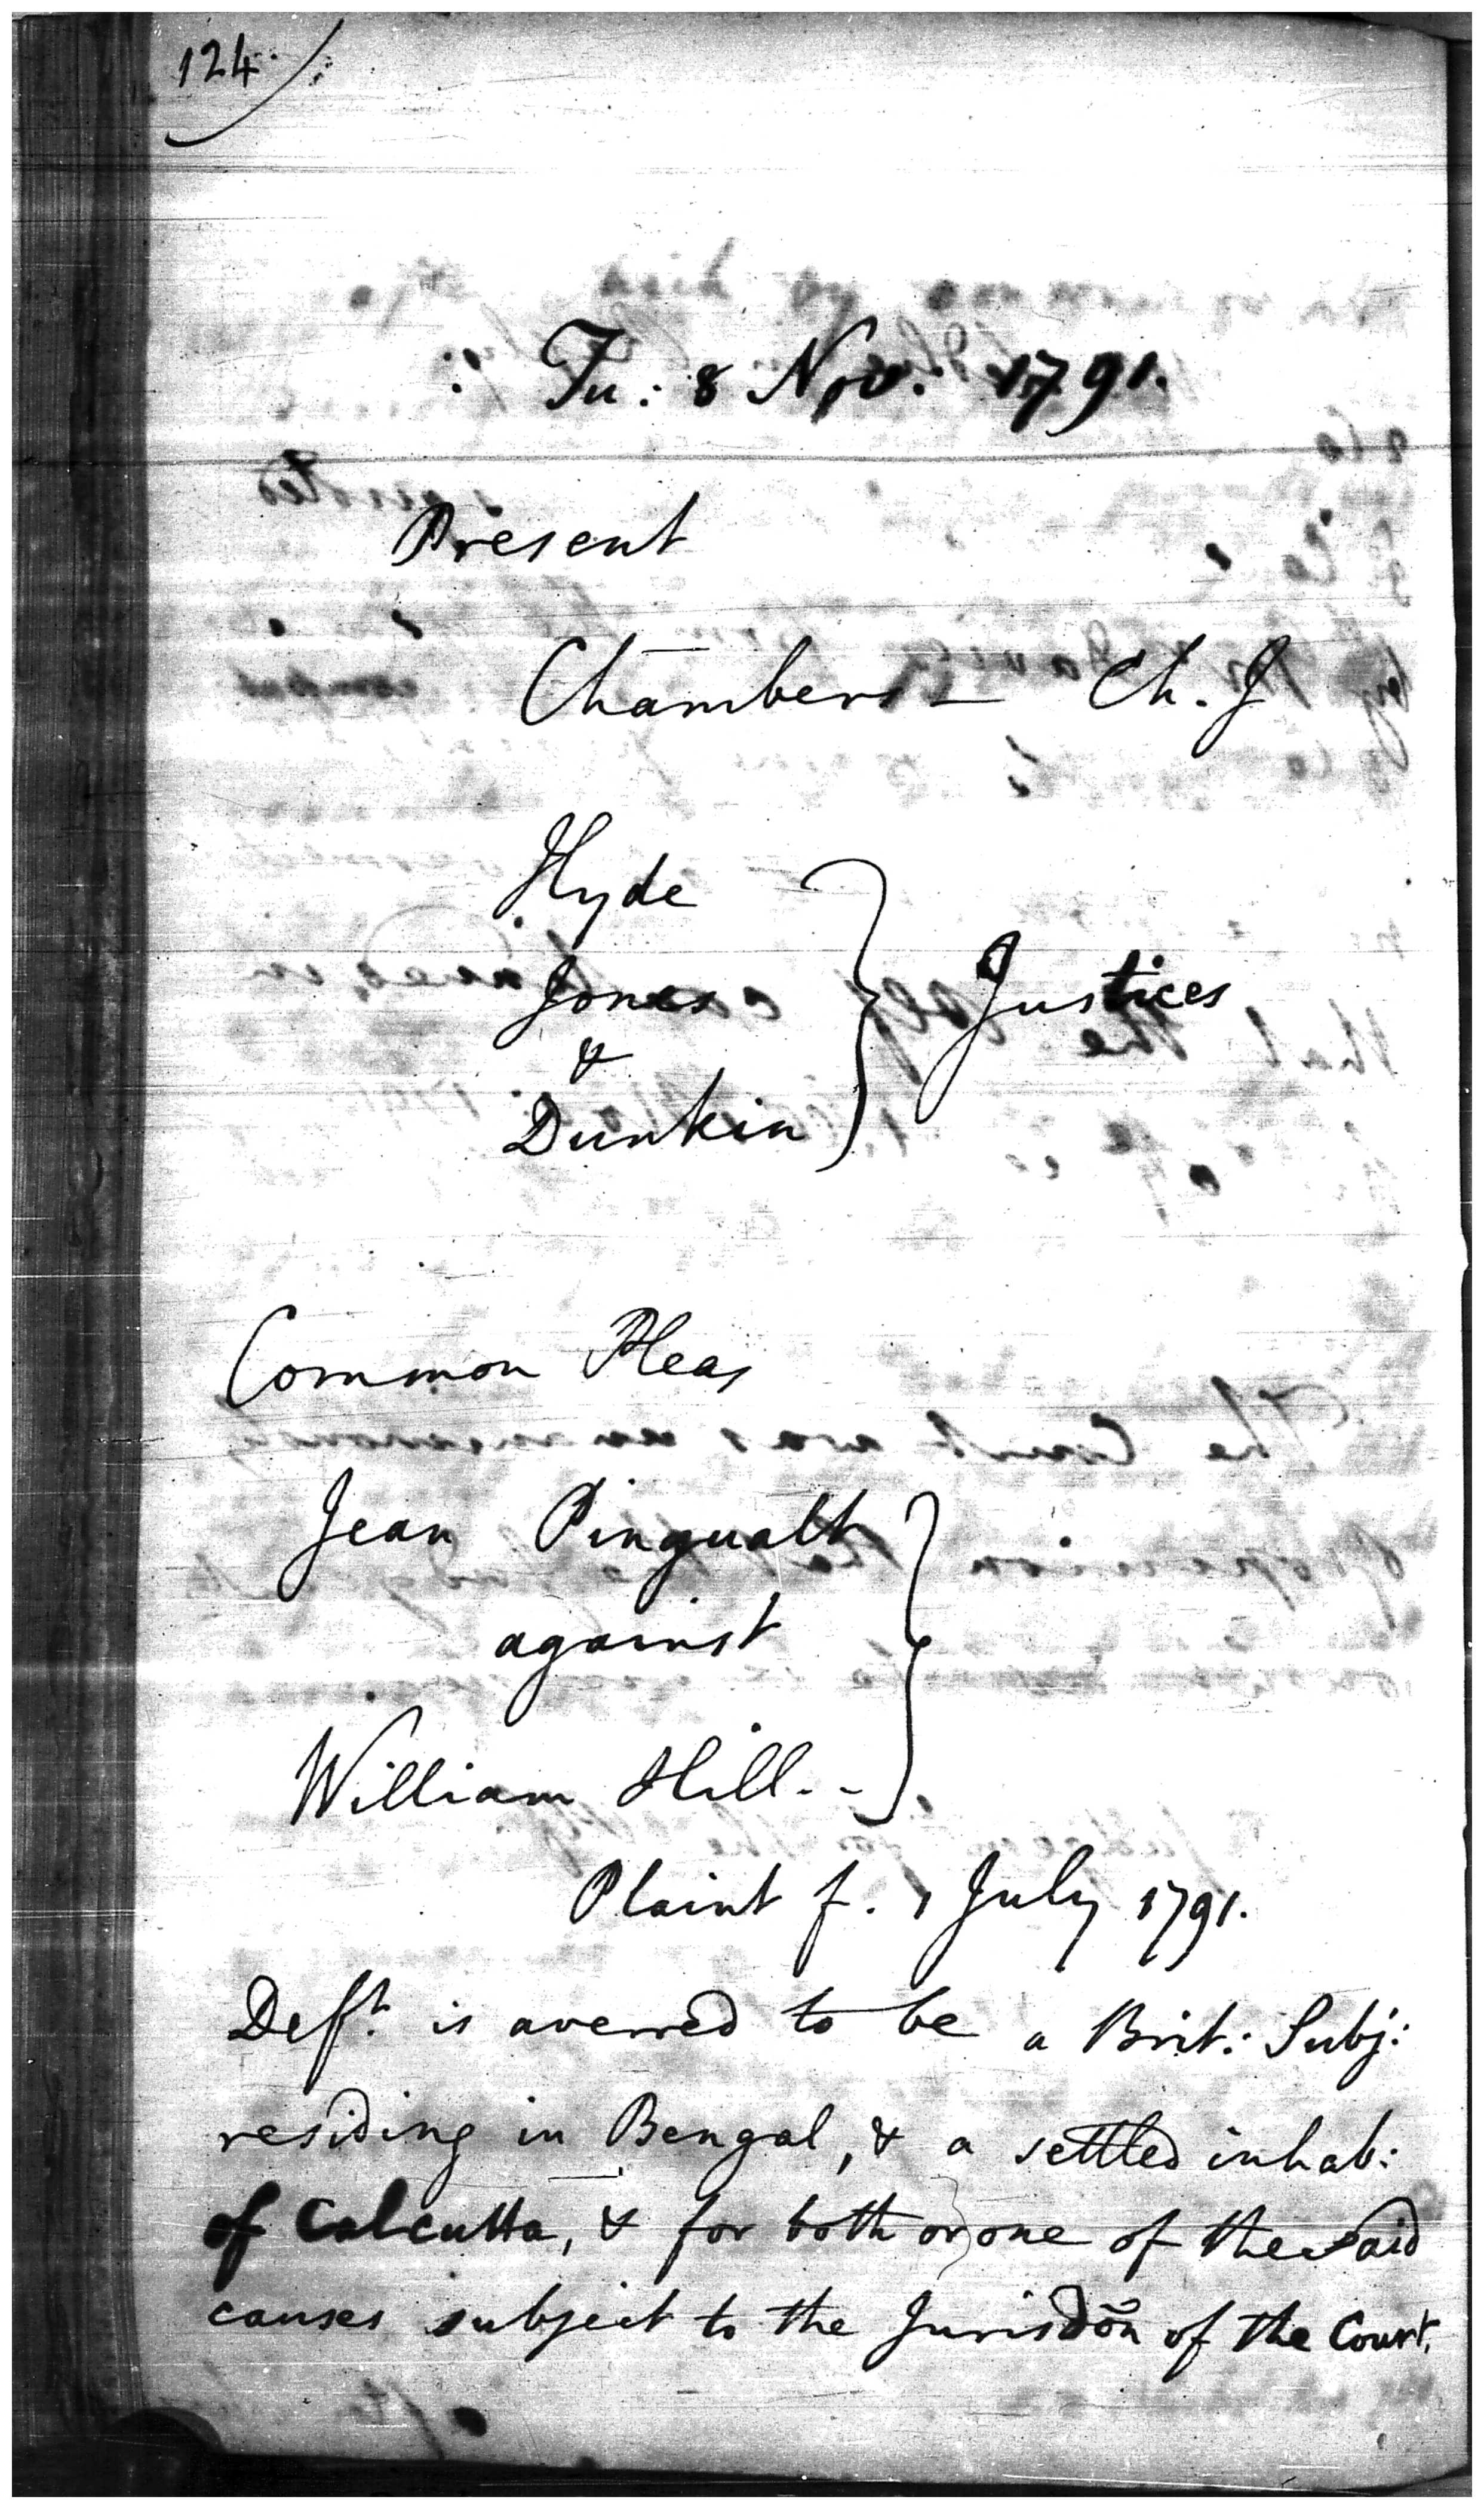 124
Tu: 8 Nov. 1791.
Present
Chambers – Ch. J
Hyde
Jones
&
Dunkin
Justices
Common Pleas
Jean Pingualt
against
William Hill. -
Plaint f. 1 July 1791.
Deft. is averred to be a Brit: Subj:
residing in Bengal, & a settled inhab:
of Calcutta, & for both or one of the said
causes subject to the Jurisdõn of the Court.